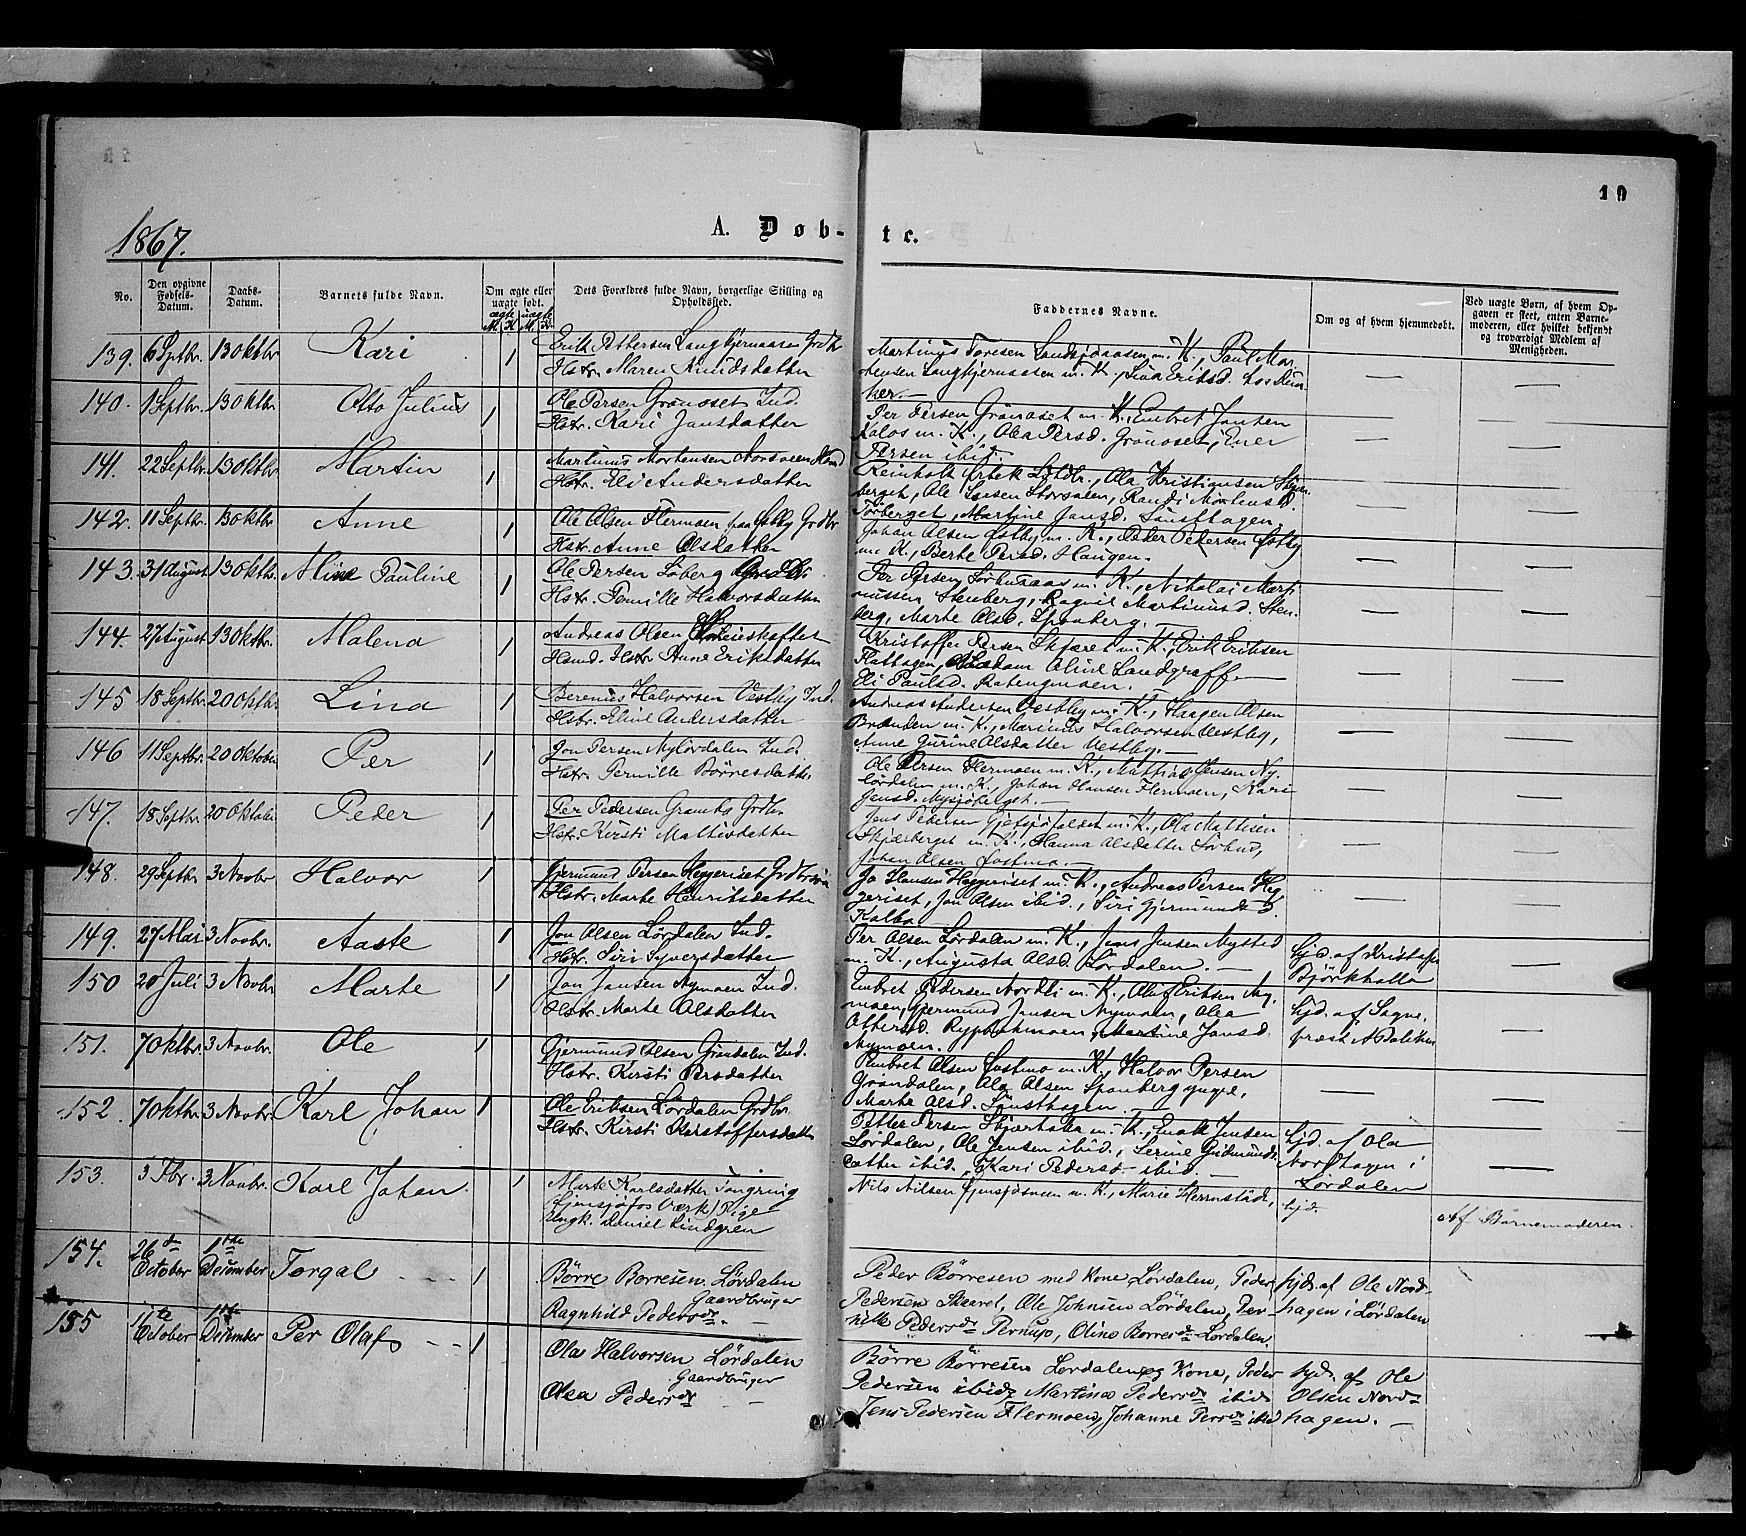 19
1867.
A. Døb-
te.
No.
Den opgivne Fødsels-Datum.
Daabs-Datum.
Barnets fulde Navn.
Om ægte eller uægte født.
ægte uægte
M. K. M. K.
Dets Forældres fulde Navn, borgerlige Stilling og Opholdssted.
Faddernes Navne.
Om og af hvem hjemmedøbt.
Ved uægte Børn, af hvem Opgaven er skeet, enten Barnemoderen, eller hvilket bekjendt og troværdigt Medlem af Menigheden.
139. 6 Septbr. 13 Oktbr Kari 1 Erik Pettersen Langkjernaasen Grdbr
Hstr. Maren Knudsdatter
Martinus Toresen Landsjøaasen m. K., Paul Mor-
tensen Langkjernaasen m. K., Lina Eriksd.
140. 1 Septbr. 13 Oktbr Otto Julius 1 Ole Persen Grønoset Ind.
Hstr. Kari Jansdatter
Per Persen Grønoset m. K., Embret Jansen
Kalos m. K., Olea Persd. Grønoset, Ener
Persen ibid.
141. 22 Septbr. 13 Oktbr Martin 1 Martinus Mortensen Nordveen Hsmd
Hstr. Eli Andersdatter
Reinholt Ørbek Ldhdlr., Ola Kristiansen
berget, Ole Larsen Storsalen, Randi Mortensd.
Torberget, Martine Jansd. Lausthagen.
142. 11 Septbr. 13 Oktbr Anne 1 Ole Olsen Flermoen paa Østby Grdbr
Hstr. Anne Olsdatter
Johan Olsen Østby m. K., Peder Pedersen Østby
m. K., Berte Persd. Haugen.
143. 31 August 13 Oktbr. Mine Pauline 1 Ole Persen Søberg
Hstr. Pernille Halvorsdatter
Per Persen Sørhusaas m. K., Nikolai Marti-
nussen Stenberg, Ragnil Martinusd. Sten-
berg, Marte Olsd. Spanberg.
144. 27 August 13 Oktbr. Malena 1 Andreas Olsen
Hsmd. Hstr Anne Eriksdatter
Kristoffer Persen Skjæret m. K., Erik Eriksen
Flathagen, Madam Aline Landgraff
Eli Paulsd. Rabengmoen.
145 18 Septbr. 20 Oktbr. Lina 1 Berenus Halvorsen Vestby Ind.
Hstr. Eline Andersdatter
Andreas Andersen Vestby m. K., Haagen Olsen
Brænden m. K., Marinus Halvorsen Vestby,
Anne Gurine Olsdatter Vestby.
146 11 Septbr. 20 Oktober Per 1 Jon Persen Nylördalen Ind.
Hstr. Pernille Börresdattr.
Ole Persen Flermoen m. K., Mathias Jensen Ny-
lördalen m. K., Johan Olausen Flermoen, Kari
Jensd. Nysjöberget.
147. 18 Septbr 20 Oktober Peder 1 Per Pedersen Gramby Grdbr.
Hstr. Kirsti Mattisdatter
Jens Pedersen Gjetsjöfaldet m. K., Ola Mattisen
Skjærberget m. K., Hanna Olsdatter Sörhus,
Johan Olsen Östmo.
148. 29 Septbr. 3 Novbr Halvor 1 Gjermund Persen Heggeriset Grdbr
Hstr. Marte Henriksdatter
Jo Hansen Heggeriset m. K., Andreas Persen Heg-
geriset, Jon Olsen ibid., Siri Gjermundsd.
Kolbo.
149. 27 Mai 3 Novbr. Aaste 1 Jon Olsen Lördalen Ind.
Hstr. Siri Syversdatter
Per Olsen Lördalen m. K., Jens Jensen Nysted
m. K., Augusta Olsd. Lördalen.
hjd. af Kristofer
Björkholla
150 20 Juli 3 Novbr Marte 1 Jon Jansen Nymoen Ind.
Hstr. Marte Olsdatter
Embret Pedersen Nordli m. K., Ole Eriksen Ny-
moen, Gjermund Jensen Nymoen, Olea
Ottersd. Ryphatmoen, Martine Jansd.
Nymoen.
hjd. af Sogne-
præst
151. 7 Oktbr. 3 Novbr. Ole 1 Gjermund Olsen Gröndalen Ind.
Hstr. Kirsti Persdatter
Embret Olsen Östmo m. K., Halvor Persen
Gröndalen, Ola Olsen Spanberg yngre,
Marte Olsd. Lausthagen
152. 7 Oktbr. 3 Novbr. Karl Johan 1 Ole Eriksen Lördalen Grdbr
Hstr. Kirsti Kristoffersdatter
Petter Persen Skjærhola m. K., Enok Jensen
Lördalen, Ole Jensen ibid., Serine Gudmunds-
datter ibid., Kari Pedersd ibid.
hjd. af Ola
Nordhagen i
Lördalen
153. 3 3 Novbr. Karl Johan 1 Marte Karlsdatter Tongring
Værk) Pige
Ungk. Daniel Lindgren
Nils Nilsen m. K., Marie Hernstadt,
hjd.
af Barnemoderen.
154. 26de October 1ste December Torgal 1 Börre Börresen Lördalen
Gaardbruger
Ragnhild Pedersdr.
Peder Börresen med Kone Lördalen, Peder
Pedersen Skaaret, Ole Johnsen Lördalen, Per-
nille Pedersdr Pernup, Oline Borresdr Lördalen.
hjd. af Ole Nord-
hagen i Lördalen
155 11te October 1ste December Per Olaf 1 Olaf Halvorsen Lördalen
Gaardbruger
Olea Pedersdr
Börre Börresen Lördalen og Kone, Peder
Pedersen ibid, Martines Pedersdr ibid
Jens Pedersen Flermoen, Johanne Persdr ibid
hjd. af Ole
Olsen Nord-
hagen.